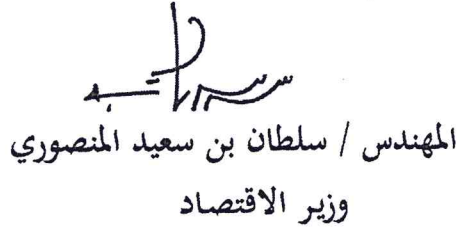 المهندس / سلطان بن سعيد المنصوري
وزير الاقتصاد